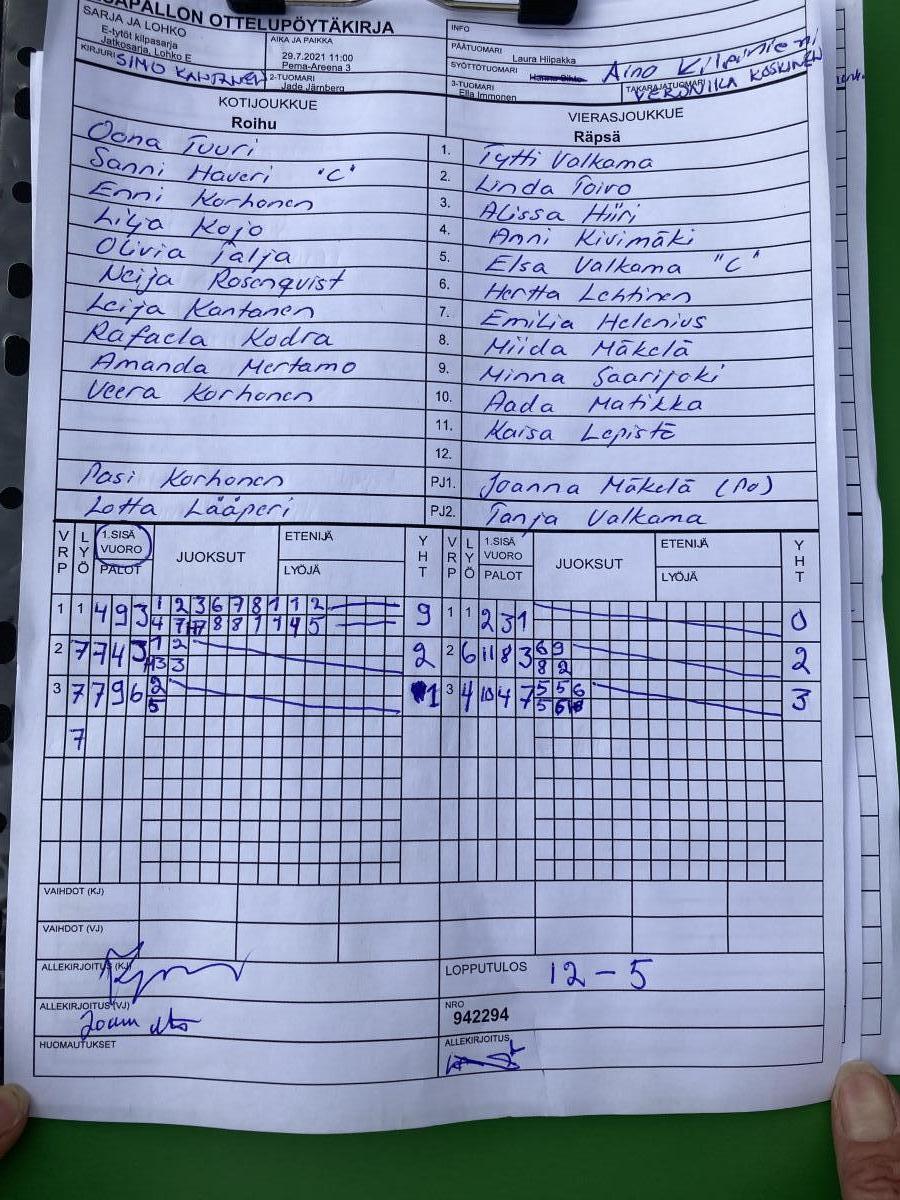 SAPALLON OTTELUPÖYTÄKIRJA
SARJA JA LOHKO
E-tytöt kilpasarja
Jatkosarja, Lohko E
AIKA JA PAIKKA
29.7.2021 11:00
Pema-Areena 3
INFO
PÄÄTUOMARI
Laura Hilpakka
KIRJURI SIMO KANTANEN
2-TUOMARI
Jade Järnberg
SYÖTTÖTUOMARI
Aino Kilpiniemi
3-TUOMARI
Ella Immonen
TAKARAJATUOMARI
VERONIIKA KOSKINEN
KOTIJOUKKUE
Roihu
VIERASJOUKKUE
Räpsä
Oona Tuuri 1. Tytti Valkama
Sanni Haveri "C" 2. Linda Toivo
Enni Korhonen 3. Alissa Hiiri
Lilja Kojo 4. Anni Kivimäki
Olivia Talja 5. Elsa Valkama "C"
Neija Rosenqvist 6. Hertta Lehtinen
Leija Kantanen 7. Emilia Helenius
Rafaela Kodra 8. Miida Mäkelä
Amanda Mertamo 9. Minna Saarijoki
Veera Korhonen 10. Aada Matikka
11. Kaisa Lepistö
12.
Pasi Korhonen PJ1. Joanna Mäkelä (PO)
Lotta Lääperi PJ2. Tanja Valkama
VRP LYÖ 1.SISÄ VUORO PALOT JUOKSUT ETENIJÄ LYÖJÄ YHT VRP LYÖ 1.SISÄ VUORO PALOT JUOKSUT ETENIJÄ LYÖJÄ YHT
1 1 4 9 3 1 2 3 6 7 8 1 1 2 9 1 1 2 3 1 0
2 7 7 4 3 1 2 2 2 6 11 8 3 6 9 2
3 3 8 2
3 7 7 9 6 2 1 3 4 10 4 7 5 5 6 3
5 5 6
7
VAIHDOT (KJ)
VAIHDOT (VJ)
ALLEKIRJOITUS (KJ)
LOPPUTULOS 12 - 5
ALLEKIRJOITUS (VJ)
NRO
942294
HUOMAUTUKSET
ALLEKIRJOITUS